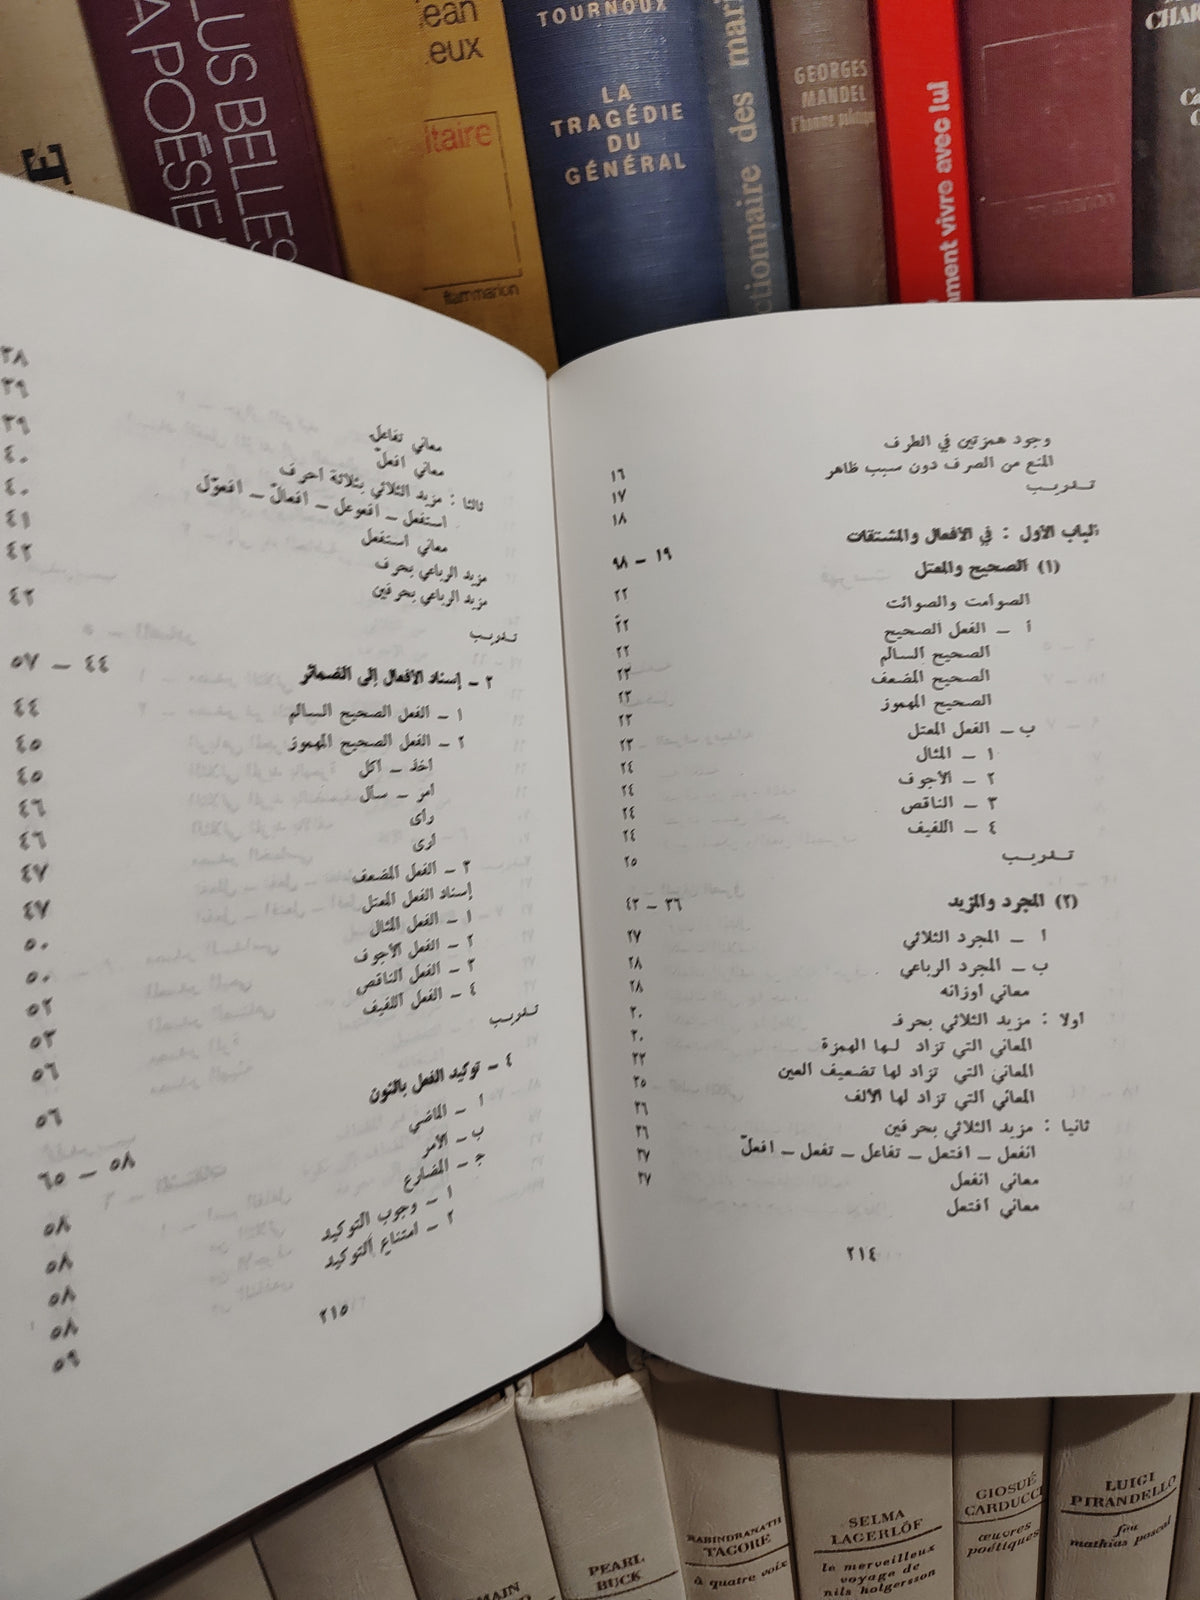 LUS BELLES
A POÉSIE
Jean
eux
flammarion
TOURNOUX
LA
TRAGÉDIE
DU
GÉNÉRAL
GEORGES
MANDEL
l'homme politique
avec lui
vivre
وجود همزتين في الطرف ١٦
المنع من الصرف دون سبب ظاهر ١٧
تدريب ١٨
الباب الأول : في الأفعال والمشتقات ١٩ – ٩٨
(١) الصحيح والمعتل ٢٢
الصوامت والصوائت ٢٢
أ – الفعل الصحيح ٢٢
الصحيح السالم ٢٣
الصحيح المضعف ٢٣
الصحيح المهموز ٢٣
ب – الفعل المعتل ٢٣
١ – المثال ٢٤
٢ – الأجوف ٢٤
٣ – الناقص ٢٤
٤ – اللفيف ٢٤
تدريب ٢٥
(٢) المجرد والمزيد ٢٦ – ٤٣
أ – المجرد الثلاثي ٢٧
ب – المجرد الرباعي ٢٨
معاني أوزانه ٢٨
أولا : مزيد الثلاثي بحرف ٣٠
المعاني التي تزاد لها الهمزة ٣٠
المعاني التي تزاد لها تضعيف العين ٣٢
المعاني التي تزاد لها الألف ٣٥
ثانيا : مزيد الثلاثي بحرفين ٣٦
انفعل – افتعل – تفاعل – تفعل – افعلّ ٣٦
معاني انفعل ٣٧
معاني افتعل ٣٧
٢١٤
معاني تفاعل ٣٨
معاني افعلّ ٣٩
ثالثا : مزيد الثلاثي بثلاثة أحرف ٣٩
استفعل – افعوعل – افعالّ – افعوّل ٤٠
معاني استفعل ٤٠
مزيد الرباعي بحرف ٤١
مزيد الرباعي بحرفين ٤٢
تدريب ٤٢
٢ – إسناد الأفعال إلى الضمائر ٤٤ – ٥٧
١ – الفعل الصحيح السالم ٤٤
٢ – الفعل الصحيح المهموز ٤٥
أخذ – أكل ٤٥
أمر – سأل ٤٦
رأى ٤٦
أرى ٤٧
٣ – الفعل المضعف ٤٧
إسناد الفعل المعتل ٥٠
١ – الفعل المثال ٥٠
٢ – الفعل الأجوف ٥٢
٣ – الفعل الناقص ٥٣
٤ – الفعل اللفيف ٥٦
تدريب ٥٦
٤ – توكيد الفعل بالنون ٥٨ – ٦٥
أ – الماضي ٥٨
ب – الأمر ٥٨
جـ – المضارع ٥٨
١ – وجوب التوكيد ٥٨
٢ – امتناع التوكيد ٥٩
٢١٥
PEARL
BUCK
RABINDRANATH
TAGORE
à quatre voix
SELMA
LAGERLÖF
le merveilleux
voyage de
nils holgersson
GIOSUÉ
CARDUCCI
œuvres
poétiques
LUIGI
PIRANDELLO
feu
mathias pascal